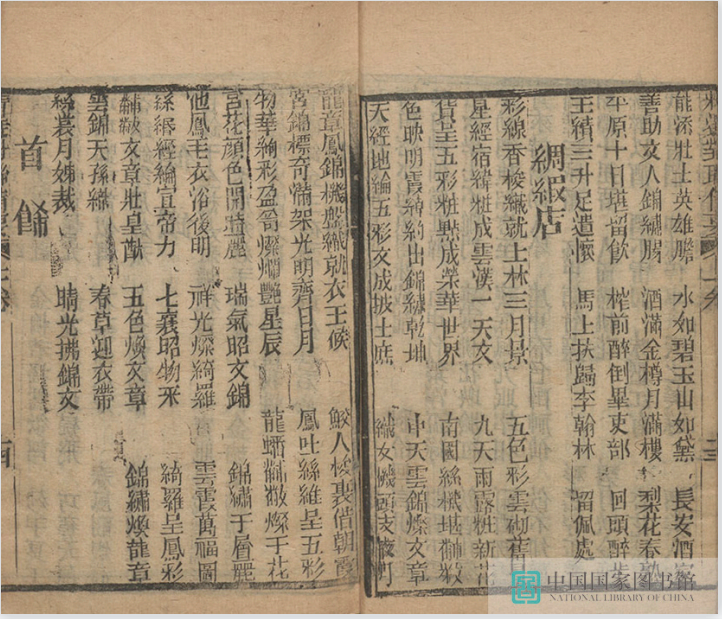 能添壯士英雄膽　水如碧玉山如黛　長安酒
善助文人錦繡腸　酒滿金樽月滿樓　梨花春熟
平原十日堪留飲　樽前醉倒畢吏部　回頭醉步
王績三升足遣懷　馬上扶歸李翰林　留佩處
綢緞店
彩線香梭織就上林三月景　五色彩雲砌舊
星經宿緯粧成雲漢一天文　九天雨露粧新花
貨呈五彩粧㸃成榮華世界　南國絲機堪黼黻
色映明霞約出錦繡乾坤　中天雲錦燦文章
天經地綸五彩文成坡土庶　織女機頭支
龍章鳳錦機盤織就衣王侯　鮫人梭裏借朝霞
宮錦標奇滿架光明齊日月　鳳吐絲維呈五彩
物華絢彩盈笥燦爛艷星辰　龍蟠黼黻燦千花
宮花顏色開麗　瑞氣昭文錦　錦繡千層麗
池鳳毛衣浴後明　祥光燦綺羅　雲霞萬福圖
絲緡經綸宣帝力　七襄昭物釆　綺羅呈鳳彩
黼黻文章壯皇猷　五色煥文章　錦繡煥龍章
雲錦天孫織　春草迎衣帶
裳月姊裁　晴光拂錦文
首餙
中国国家图书馆
NATIONAL LIBRARY OF CHINA